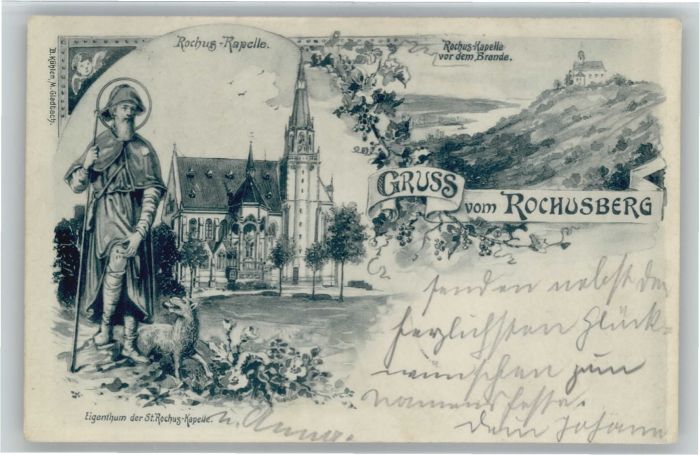 Rochus-Kapelle.
Rochus-Kapelle
vor dem Brande.
B. Kühlen, M. Gladbach.
GRUSS
vom ROCHUSBERG
senden nebst den
herzlichsten Glück-
wünschen zum
Namensfeste.
Dein Johann
u. Anna.
Eigenthum der St. Rochus-Kapelle.